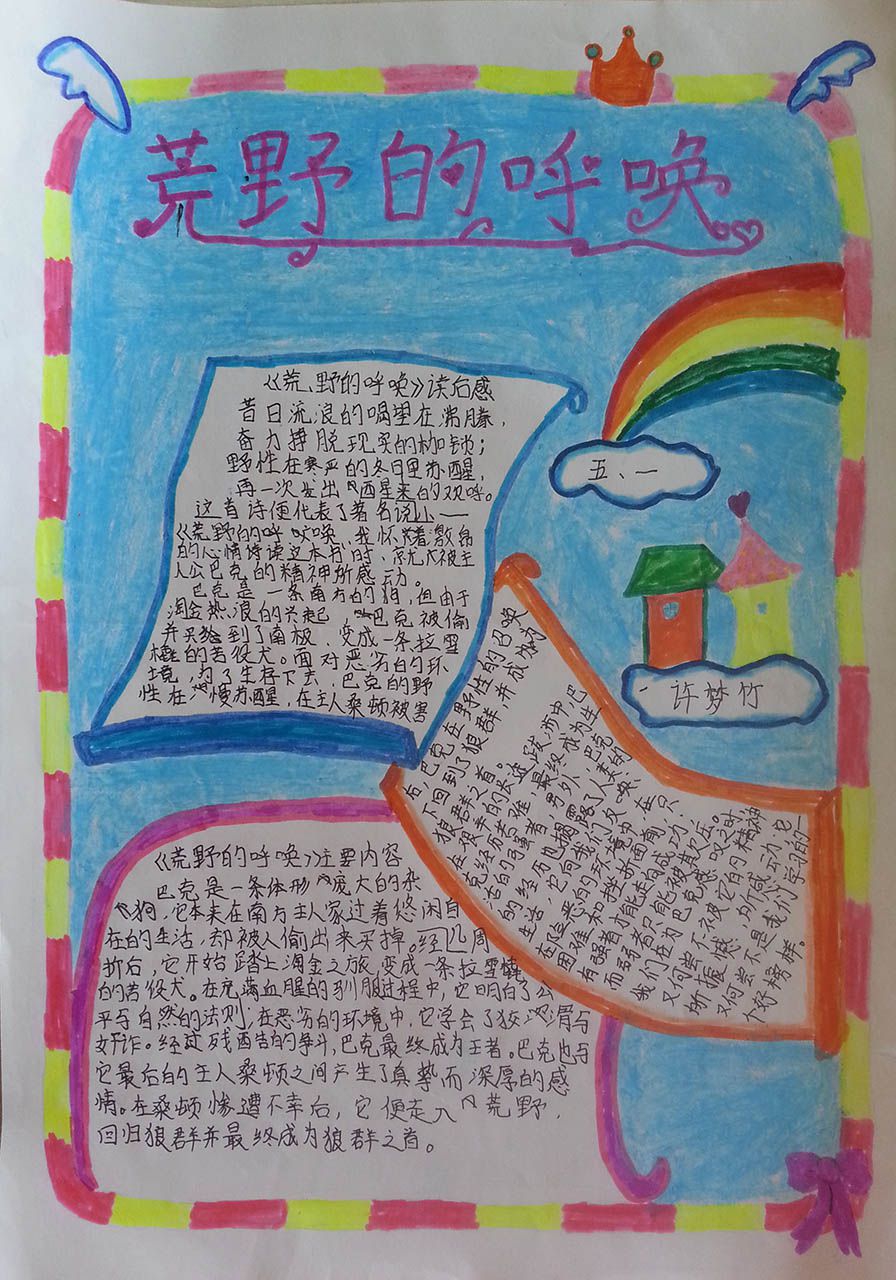 荒野的呼唤
《荒野的呼唤》读后感
昔日流浪的渴望在沸腾,
奋力挣脱现实的枷锁;
野性在寒严的冬日里苏醒,
再一次发出醒来的欢呼。
这首诗便代表了著名说小——
《荒野的呼唤 我怀着激
的心情读这本书时、就被主
人公巴克的精神所感动。
巴克是一条南方的狗,但由于
淘金热浪的兴起,巴克被偷
并买到了南极,变成一条拉雪
橇的苦役犬。面对恶劣的环
境,为了生存下去,巴克的野
性在慢苏醒,在主人桑顿被害
后,巴克在野性的召唤
下回到了狼群,并成为为
狼群之首。
在漫丰的长途跋涉中,巴
克经历苦难,最终成为生
活的强者,另外,巴克
的经历也揭露了人类的
生活,它向我们反映
在险恶的环境中,在
困难和挫折面前,只
有强者才能走向成功,
而弱者只能被其欺压。
我们在为巴克感叹之时,
又何尝不被它的精神
所振憾,所感动,它
又何尝不是我们学习的一
个好榜样。
五、一
许梦竹
《荒野的呼唤》主要内容
巴克是一条体形庞大的杂
狗,它本来在南方主人家过着悠闲自
在的生活,却被人偷出来买掉。经四周
折后,它开始踏上淘金之旅,变成一条拉雪橇
的苦役犬。在充满血腥的驯服过程中,它明白了公
平与自然的法则,在恶劣的环境中,它学会了狡滑与
奸诈。经过残酷的争斗,巴克最终成为王者。巴克也与
它最后的主人桑顿之间产生了真挚而深厚的感
情。在桑顿惨遭不幸后,它便走入荒野,
回归狼群并最终成为狼群之首。